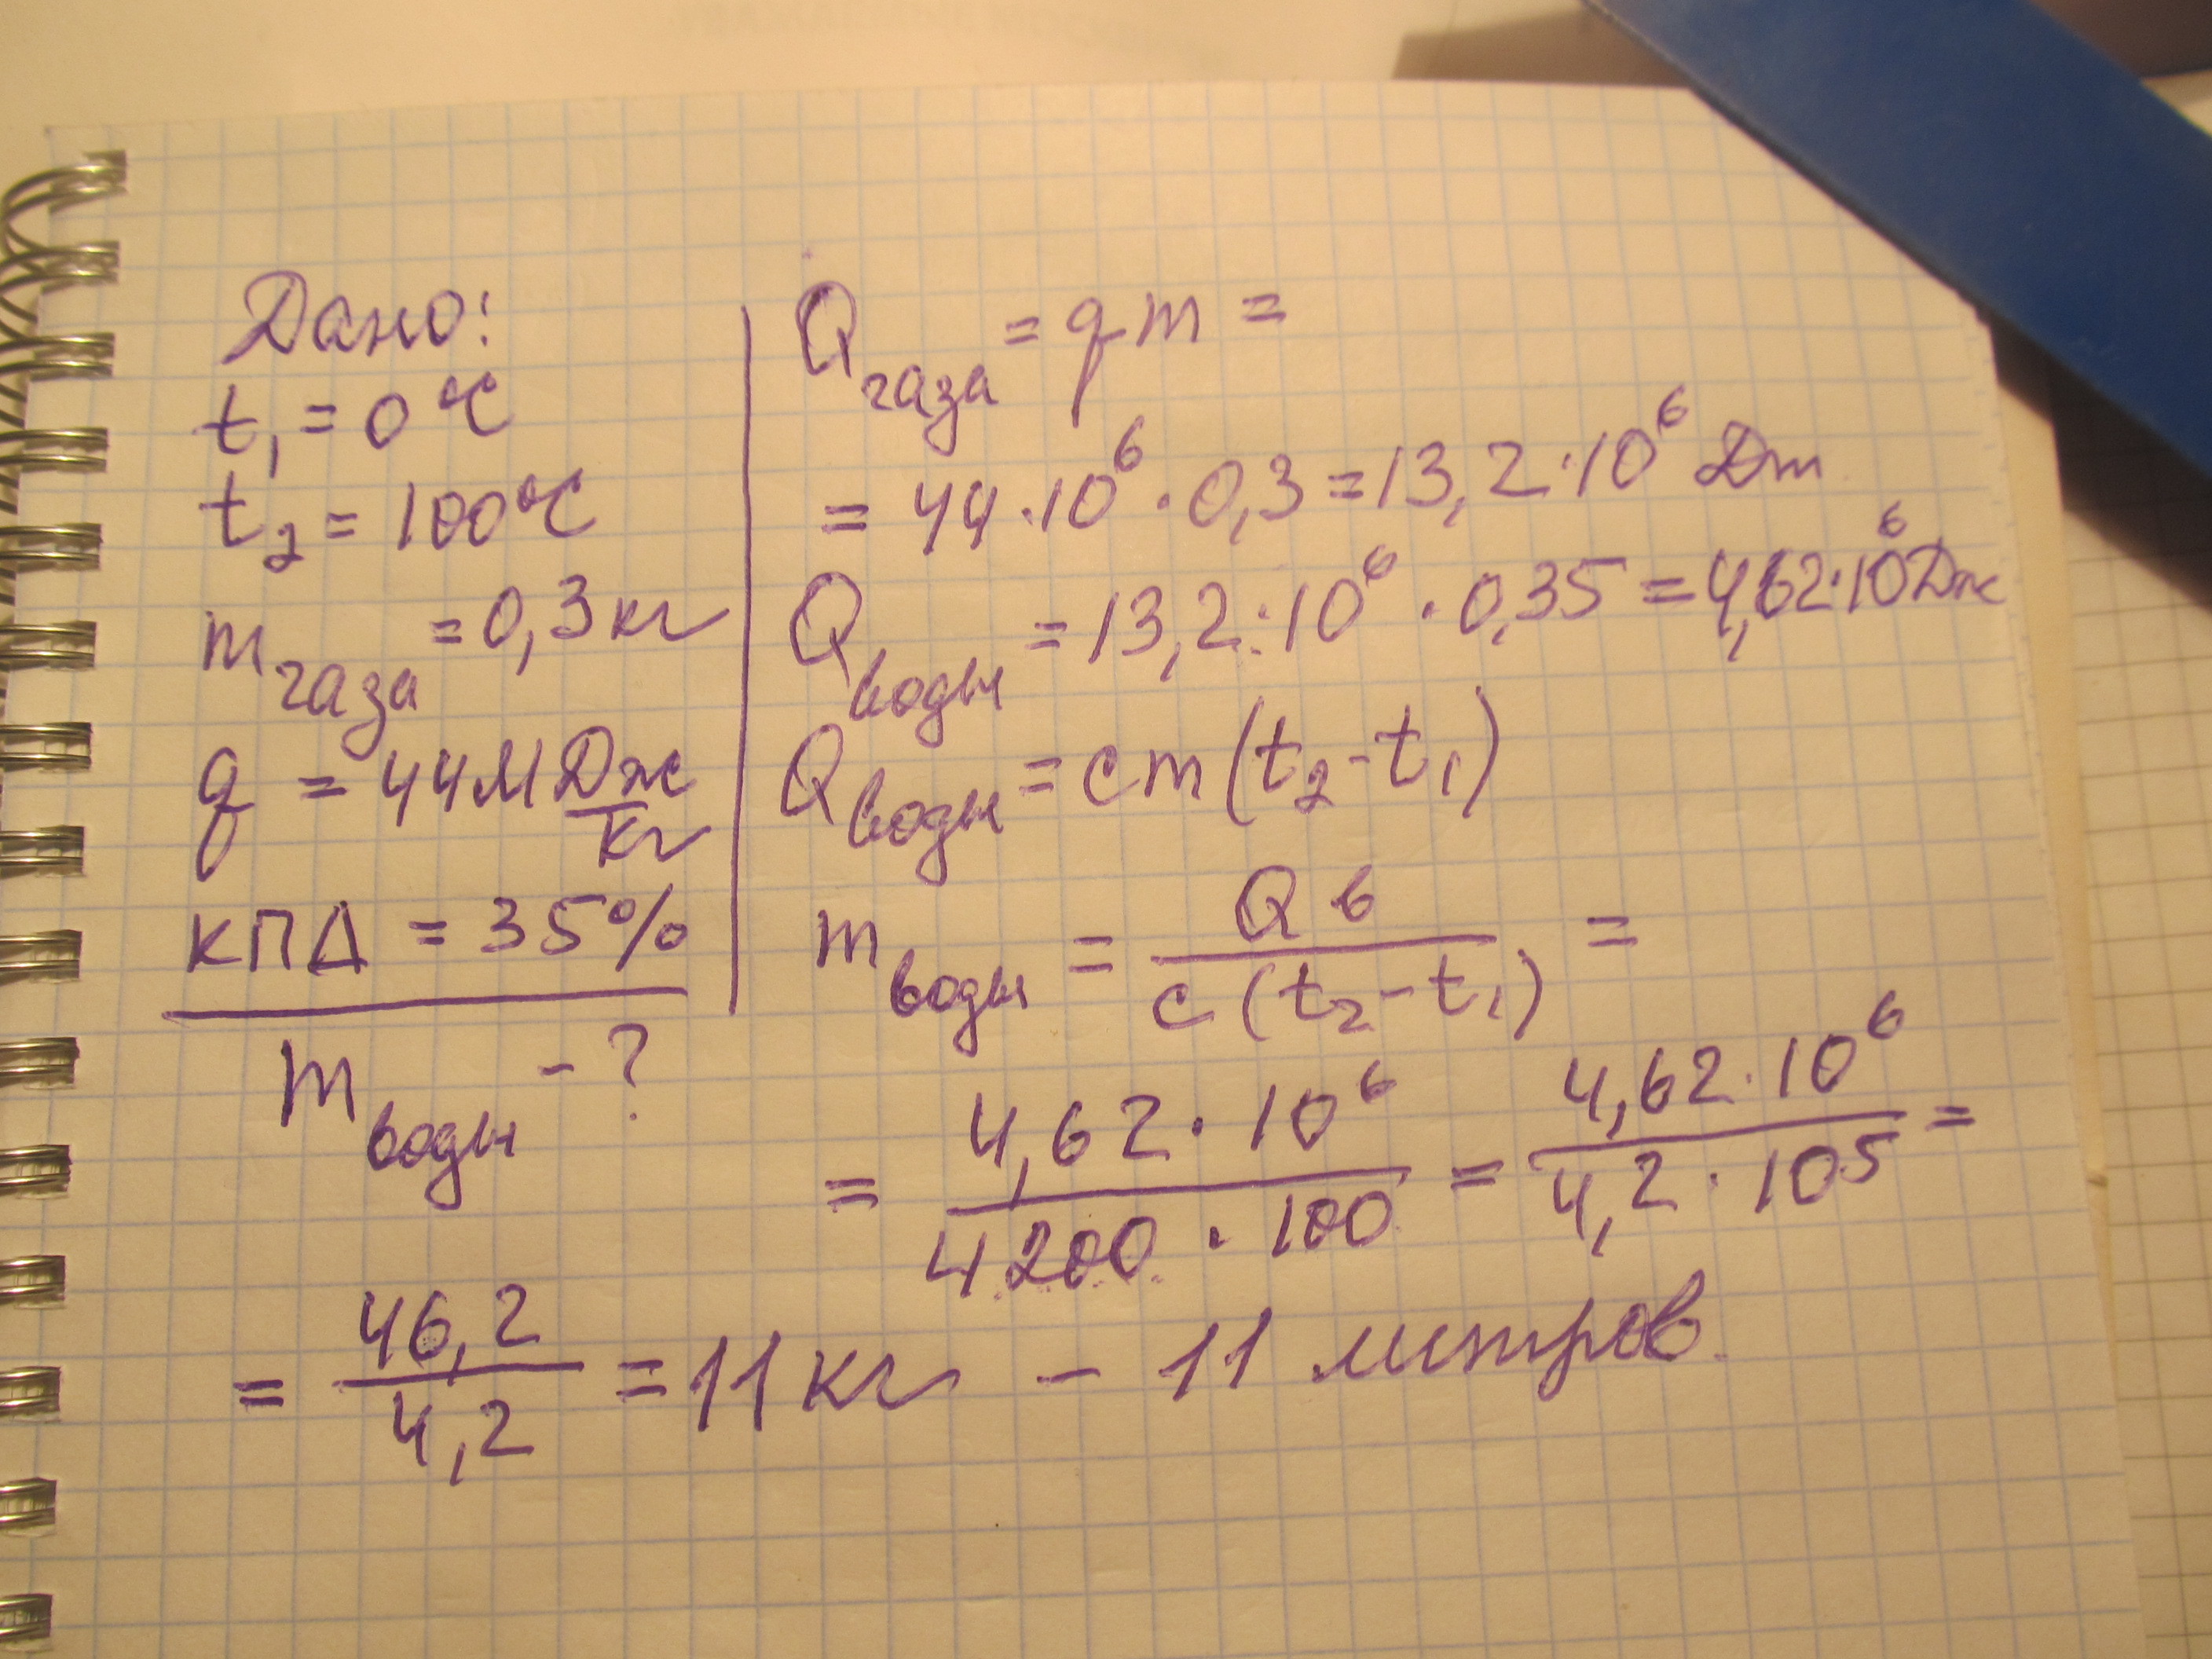 Дано:
t₁ = 0 °C
t₂ = 100 °C
m газа = 0,3 кг
q = 44 МДж/кг
КПД = 35%
m воды - ?
Q газа = qm =
= 44·10⁶·0,3 = 13,2·10⁶ Дж
Q воды = 13,2·10⁶·0,35 = 4,62·10⁶ Дж
Q воды = cm(t₂-t₁)
m воды = Qв / c(t₂-t₁) =
= 4,62·10⁶ / 4200·100 = 4,62·10⁶ / 4,2·10⁵ =
= 46,2 / 4,2 = 11 кг - 11 литров.